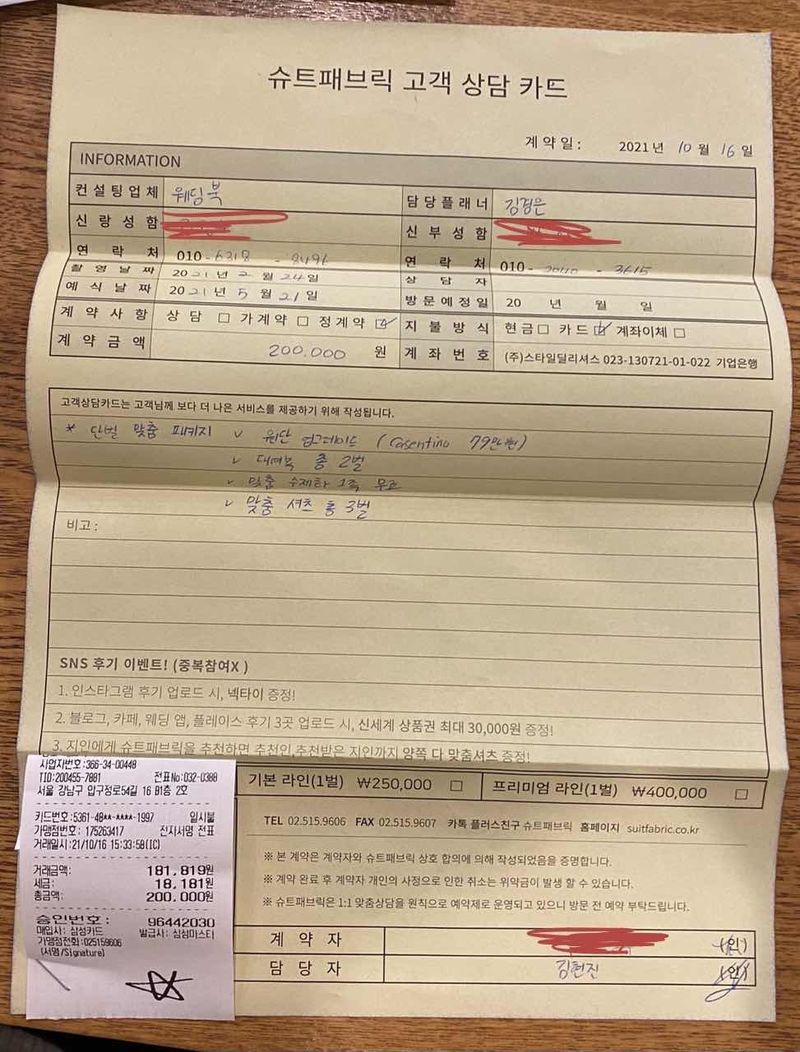 슈트패브릭 고객 상담 카드
계약일: 2021년 10월 16일
INFORMATION
컨설팅업체 웨딩북 담당플래너 김경은
신랑성함 신부성함
연락처 010- 연락처 010-
촬영날짜 2021년 2월 24일 상담자
예식날짜 2021년 5월 21일 방문예정일 20 년 월 일
계약사항 상담 □ 가계약 □ 정계약 ☑ 지불방식 현금□ 카드☑ 계좌이체 □
계약금액 200.000 원 계좌번호 (주)스타일딜리셔스 023-130721-01-022 기업은행
고객상담카드는 고객님께 보다 더 나은 서비스를 제공하기 위해 작성됩니다.
* 단벌 맞춤 패키지 ∨ 원단 업그레이드 (Cosentino 79만원)
∨ 대여복 총 2벌
∨ 맞춤 수제화 1족 무료
∨ 맞춤 셔츠 총 3벌
비고:
SNS 후기 이벤트! (중복참여X )
1. 인스타그램 후기 업로드 시, 넥타이 증정!
2. 블로그, 카페, 웨딩 앱, 플레이스 후기 3곳 업로드 시, 신세계 상품권 최대 30,000원 증정!
3. 지인에게 슈트패브릭을 추천하면 추천인,추천받은 지인까지 양쪽 다 맞춤셔츠 증정!
기본 라인(1벌) ₩250,000 □ 프리미엄 라인(1벌) ₩400,000 □
TEL 02.515.9606 FAX 02.515.9607 카톡 플러스친구 슈트패브릭 홈페이지 suitfabric.co.kr
※ 본 계약은 계약자와 슈트패브릭 상호 합의에 의해 작성되었음을 증명합니다.
※ 계약 완료 후 계약자 개인의 사정으로 인한 취소는 위약금이 발생 할 수 있습니다.
※ 슈트패브릭은 1:1 맞춤상담을 원칙으로 예약제로 운영되고 있으니 방문 전 예약 부탁드립니다.
계약자 (인)
담당자 김현진 (인)
사업자번호:366-34-00448
TID:200455-7881 전표No:032-0388
서울 강남구 압구정로54길 16 B1층 2호
카드번호:5361-48**-****-1997 일시불
가맹점번호: 175263417 전자서명 전표
거래일시:21/10/16 15:33:58(IC)
거래금액: 181,819원
세금: 18,181원
총금액: 200,000원
승인번호: 96442030
매입사: 삼성카드 발급사: 삼성마스타
가맹점전화:025159606
(서명/Signature)